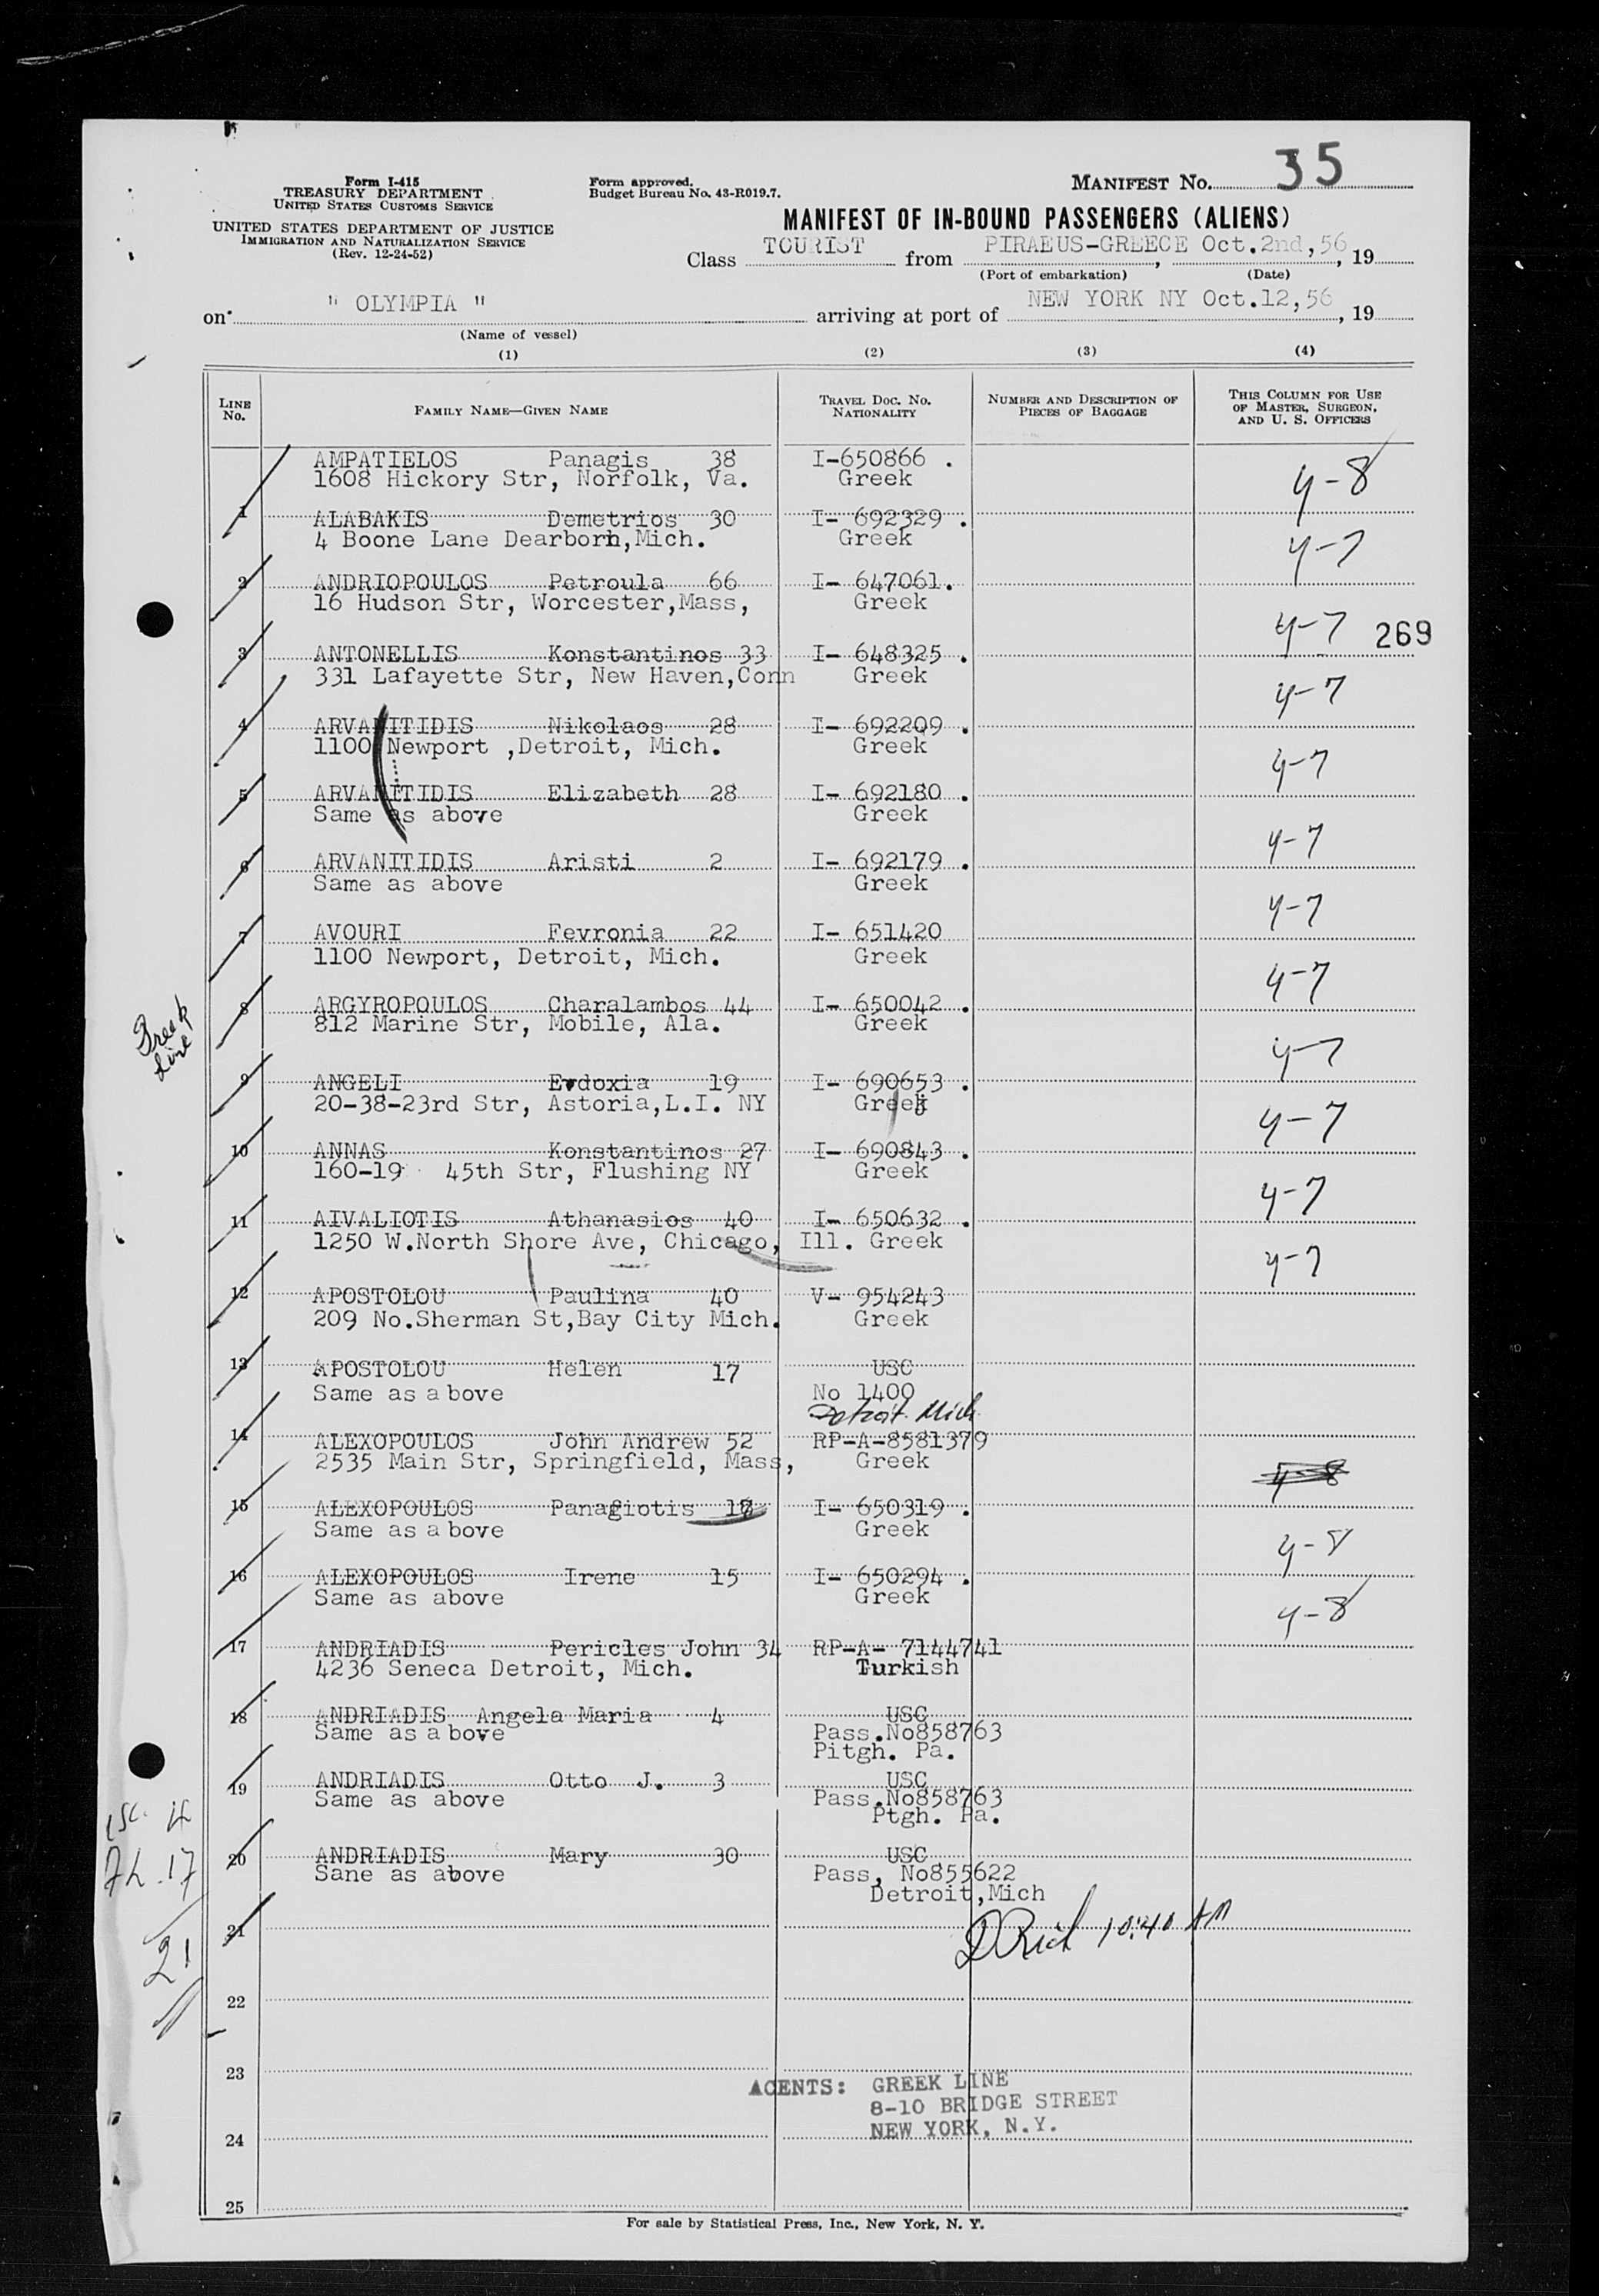 Form I-415
TREASURY DEPARTMENT
UNITED STATES CUSTOMS SERVICE
UNITED STATES DEPARTMENT OF JUSTICE
IMMIGRATION AND NATURALIZATION SERVICE
(Rev. 12-24-52)
Form approved.
Budget Bureau No. 43-R019.7.
MANIFEST No. 35
MANIFEST OF IN-BOUND PASSENGERS (ALIENS)
Class TOURIST from PIRAEUS-GREECE Oct.2nd,56, 19
(Port of embarkation) (Date)
on " OLYMPIA " arriving at port of NEW YORK NY Oct.12,56, 19
(Name of vessel)
(1) (2) (3) (4)
LINE No. FAMILY NAME—GIVEN NAME TRAVEL DOC. No. NATIONALITY NUMBER AND DESCRIPTION OF PIECES OF BAGGAGE THIS COLUMN FOR USE OF MASTER, SURGEON, AND U. S. OFFICERS
AMPATIELOS Panagis 38 I-650866 .
1608 Hickory Str, Norfolk, Va. Greek 4-8
1 ALABAKIS Demetrios 30 I- 692329 .
4 Boone Lane Dearborn,Mich. Greek 4-7
2 ANDRIOPOULOS Petroula 66 I- 647061.
16 Hudson Str, Worcester,Mass, Greek 4-7 269
3 ANTONELLIS Konstantinos 33 I- 648325 .
331 Lafayette Str, New Haven,Conn Greek 4-7
4 ARVANITIDIS Nikolaos 28 I- 692209 .
1100 Newport ,Detroit, Mich. Greek 4-7
5 ARVANITIDIS Elizabeth 28 I- 692180 .
Same as above Greek 4-7
6 ARVANITIDIS Aristi 2 I- 692179 .
Same as above Greek 4-7
7 AVOURI Fevronia 22 I- 651420
1100 Newport, Detroit, Mich. Greek 4-7
8 ARGYROPOULOS Charalambos 44 I- 650042 .
812 Marine Str, Mobile, Ala. Greek 4-7
Greek
Line
9 ANGELI Evdoxia 19 I- 690653 .
20-38-23rd Str, Astoria,L.I. NY Greek 4-7
10 ANNAS Konstantinos 27 I- 690843 .
160-19 45th Str, Flushing NY Greek 4-7
11 AIVALIOTIS Athanasios 40 I- 650632 .
1250 W.North Shore Ave, Chicago, Ill. Greek 4-7
12 APOSTOLOU Paulina 40 V- 954243
209 No.Sherman St,Bay City Mich. Greek
13 APOSTOLOU Helen 17 USC
Same as above No 1400
Detroit Mich
14 ALEXOPOULOS John Andrew 52 RP-A-8581379
2535 Main Str, Springfield, Mass, Greek 4-8
15 ALEXOPOULOS Panagiotis I- 650319 .
Same as above Greek 4-8
16 ALEXOPOULOS Irene 15 I- 650294 .
Same as above Greek 4-8
17 ANDRIADIS Pericles John 34 RP-A- 7144741
4236 Seneca Detroit, Mich. Turkish
18 ANDRIADIS Angela Maria 4 USC
Same as above Pass.No858763
Pitgh. Pa.
19 ANDRIADIS Otto J. 3 USC
Same as above Pass.No858763
Ptgh. Pa.
20 ANDRIADIS Mary 30 USC
Sane as above Pass, No855622
Detroit,Mich
17
21
21 D Rich 10:40 AM
22
23
AGENTS: GREEK LINE
8-10 BRIDGE STREET
NEW YORK, N.Y.
24
25
For sale by Statistical Press, Inc., New York, N. Y.